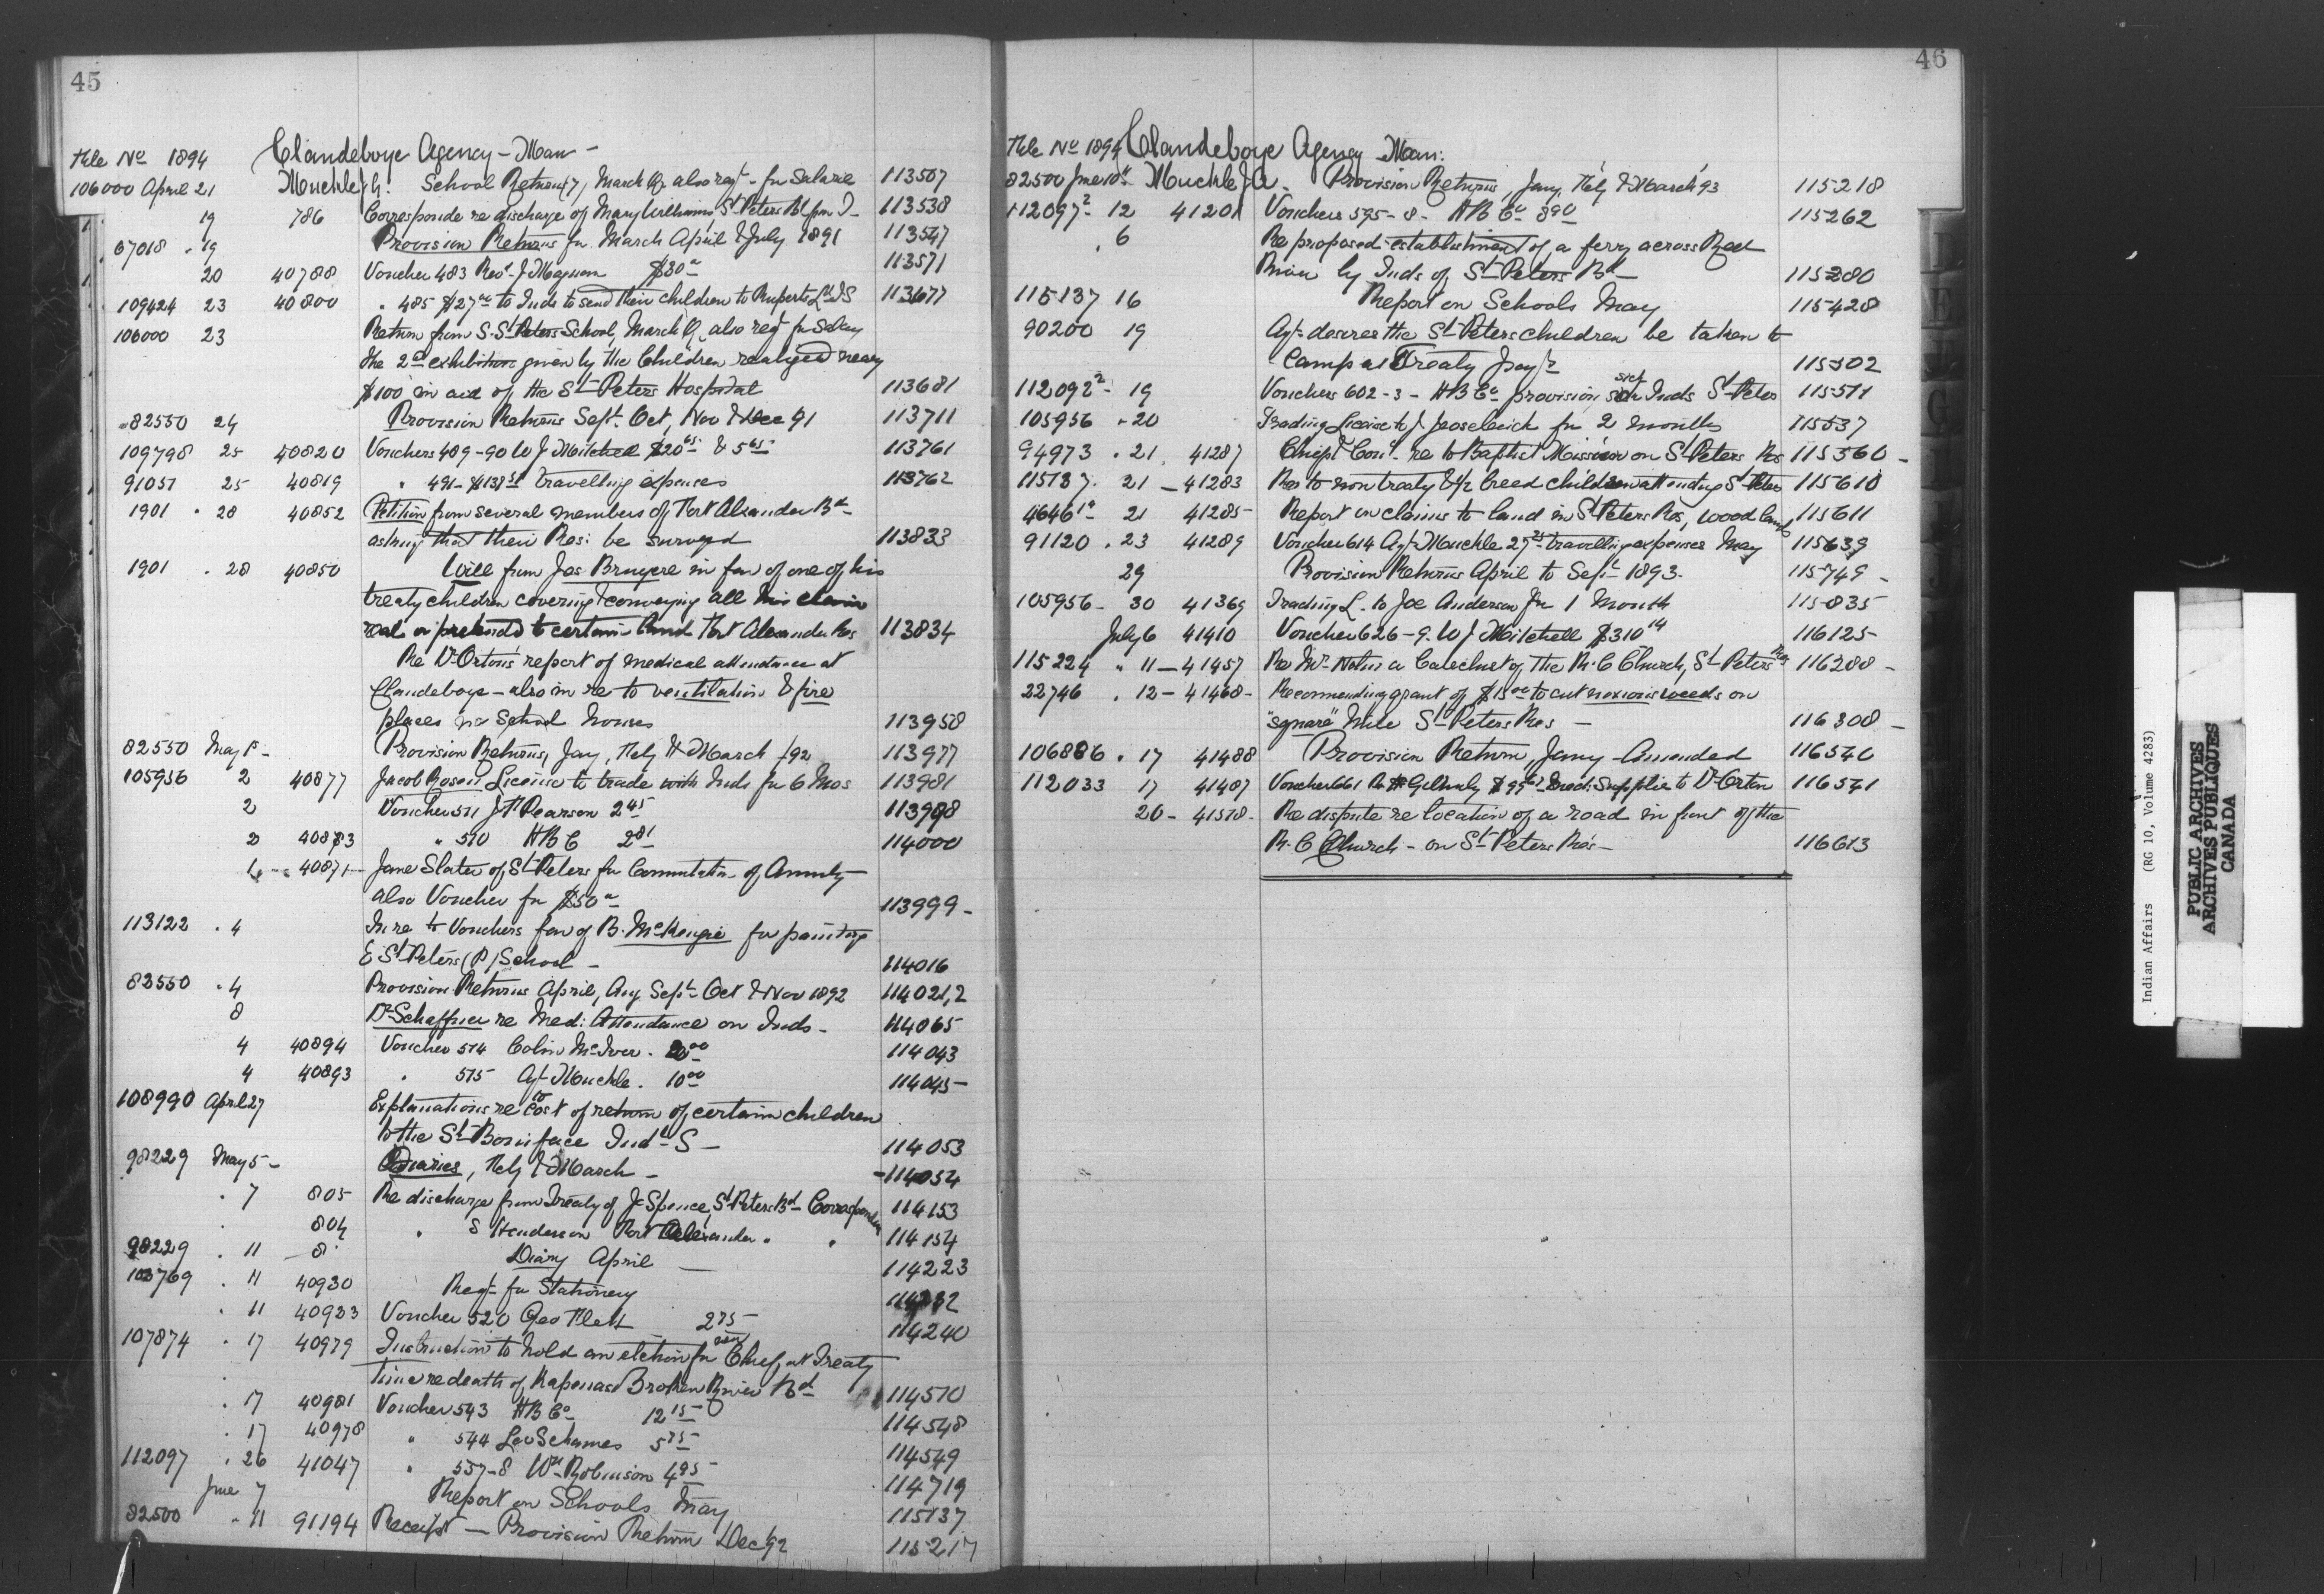 45
File No 1894 Clandeboye Agency - Man -
106000 April 21 Muckle J.A. School Returns (7) March Qr also reqt for Salarie 113507
19 786 Corresponde re discharge of Mary Williams St Peters Bd from T- 113538
67018 " 19 Provision Returns for March April & July 1891 113547
20 40788 Voucher 483 Revd J Magnan $30 113571
109424 23 40800 " 485 $27 to Inds to send their children to Ruperts Ld IS 113677
106000 23 Return from S. St Peters School, March Q, also reqt for Salary
the 2nd exhibition given by the Children realized neary
$100 in aid of the St Peters Hospital 113681
82550 24 Provision Returns Sept Oct, Nov & Dec 91 113711
109798 25 40820 Vouchers 489-90 W J Mitchell $20 65 & 5 65 113761
91051 25 40819 " 491- travelling expenses 113762
1901 " 28 40852 Petition from several members of Fort Alexander Bd
asking that their Res: be surveyd 113833
1901 " 28 40850 Will from Jas Bruyere in fav of one of his
treaty children covering & conveying all his claim
real or pretended to certain land Fort Alexander Res 113834
Re Dr Orton's report of medical attendance at
Clandeboye - also in re to ventilation & fire
places in School houses 113958
82550 May 1st Provision Returns, Jany, Feby & March /92 113977
105956 2 40877 Jacob Rosen, License to trade with Inds for 6 Mos 113981
2 Voucher 511 J F Pearson 2 45 113998
2 40883 " 510 HBC 2 81 114000
40871 Jane Slater of St Peters for Commutation of Annuity
also Voucher for $50 113999 -
113122 " 4 In re to Vouchers fav of B. McKenzie for painting
E St Peters (P) School - 114016
82550 " 4 Provision Returns April, Aug Sept Oct & Nov 1892 114021,2
8 Dr Schaffner re Med: Attendance on Inds - 114065
4 40894 Voucher 514 Colin McIver. 114043
4 40893 " 515 Agt Muckle. 10 00 114045 -
108990 April 27 Explanations re to cost of return of certain children
to the St Boniface Indl S - 114053
98229 May 5 - Diaries, Feby & March - 114054
" 7 805 Re discharge from Treaty of J Spence, St Peters Bd Correspondence 114153
804 " S Henderson Fort Alexander " " 114154
98229 " 11 8 Diary April 114223
103769 " 11 40930 Reqt for Stationery
" 11 40933 Voucher 520 Geo Flett 2 75 114240
107874 " 17 40979 Instruction to hold an election for Chief, at Treaty
time re death of Kapenas Broken River Bd 114510
" 17 40981 Voucher 543 HB Co 12 15 114548
" 17 40978 " 544 5 75 114549
112097 " 26 41047 " 557-8 Wm Robinson 4 95 114719
June 7 Report on Schools May 115137
82500 " 11 91194 Receipt - Provision Return Dec 92 115217
46
File No 1894 Clandeboye Agency - Man:
82500 June 10th Muckle J A. Provision Returns, Jany, Feby & March '93 115218
112097 2 - 12 41201 Vouchers 595-8- HB Co 8 90 115262
" 6 Re proposed establishment of a ferry across Red
River by Inds of St Peters Bd 115280
115137 16 Report on Schools May 115428
90200 19 Agt desires the St Peters children be taken to
Camp at Treaty Payt 115502
112092 2 - 19 Vouchers 602-3- HB Co provision sick Inds St Peter 115511
105956 " 20 Trading License to J. for 2 months 115537
94973 " 21 41287 Chief & Coun - re to Baptist Mission on St Peters Res 115560 -
115137 " 21 - 41283 Res to non treaty & 1/2 breed children attending St Peters 115610
4646 1a 21 41285 Report on claims to land in St Peters Res, wood lands 115611
91120 " 23 41289 Voucher 614 Agt Muckle 27 25 travelling expenses May 115639
29 Provision Returns April to Sept 1893 - 115749 -
105956 - 30 41369 Trading L. to Joe Anderson for 1 Month 115835
July 6 41410 Voucher 626-9. W J Mitchell $310 14 116125
115224 " 11 - 41457 Re Mr a Catechist of the R.C Church, St Peters Res 116280 -
22746 " 12 - 41468 - Recommending grant of $15 00 to cut noxious weeds on
"square" Mile St Peters Res - 116308 -
106886 " 17 41488 Provision Return, Jany - Amended 116540
112033 17 41487 Voucher 661 Medl Supplies to Dr Orton 116541
26 - 41578 - Re dispute re location of a road in front of the
R.C Church - on St Peters Res - 116613
Indian Affairs (RG 10, Volume 4283)
PUBLIC ARCHIVES
ARCHIVES PUBLIQUES
CANADA